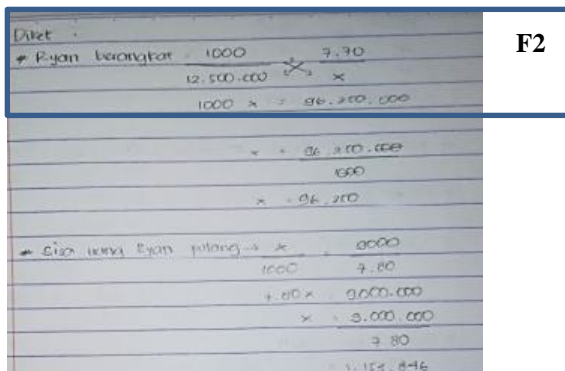 Diket :
F2
* Ryan berangkat : 1000 7.70
12.500.000 x
1000 x = 96.250.000
x = 96.250.000
1000
x = 96.250
* Sisa uang Ryan pulang → x 9000
1000 7.80
7.80 x 9.000.000
x = 9.000.000
7.80
1.153.846